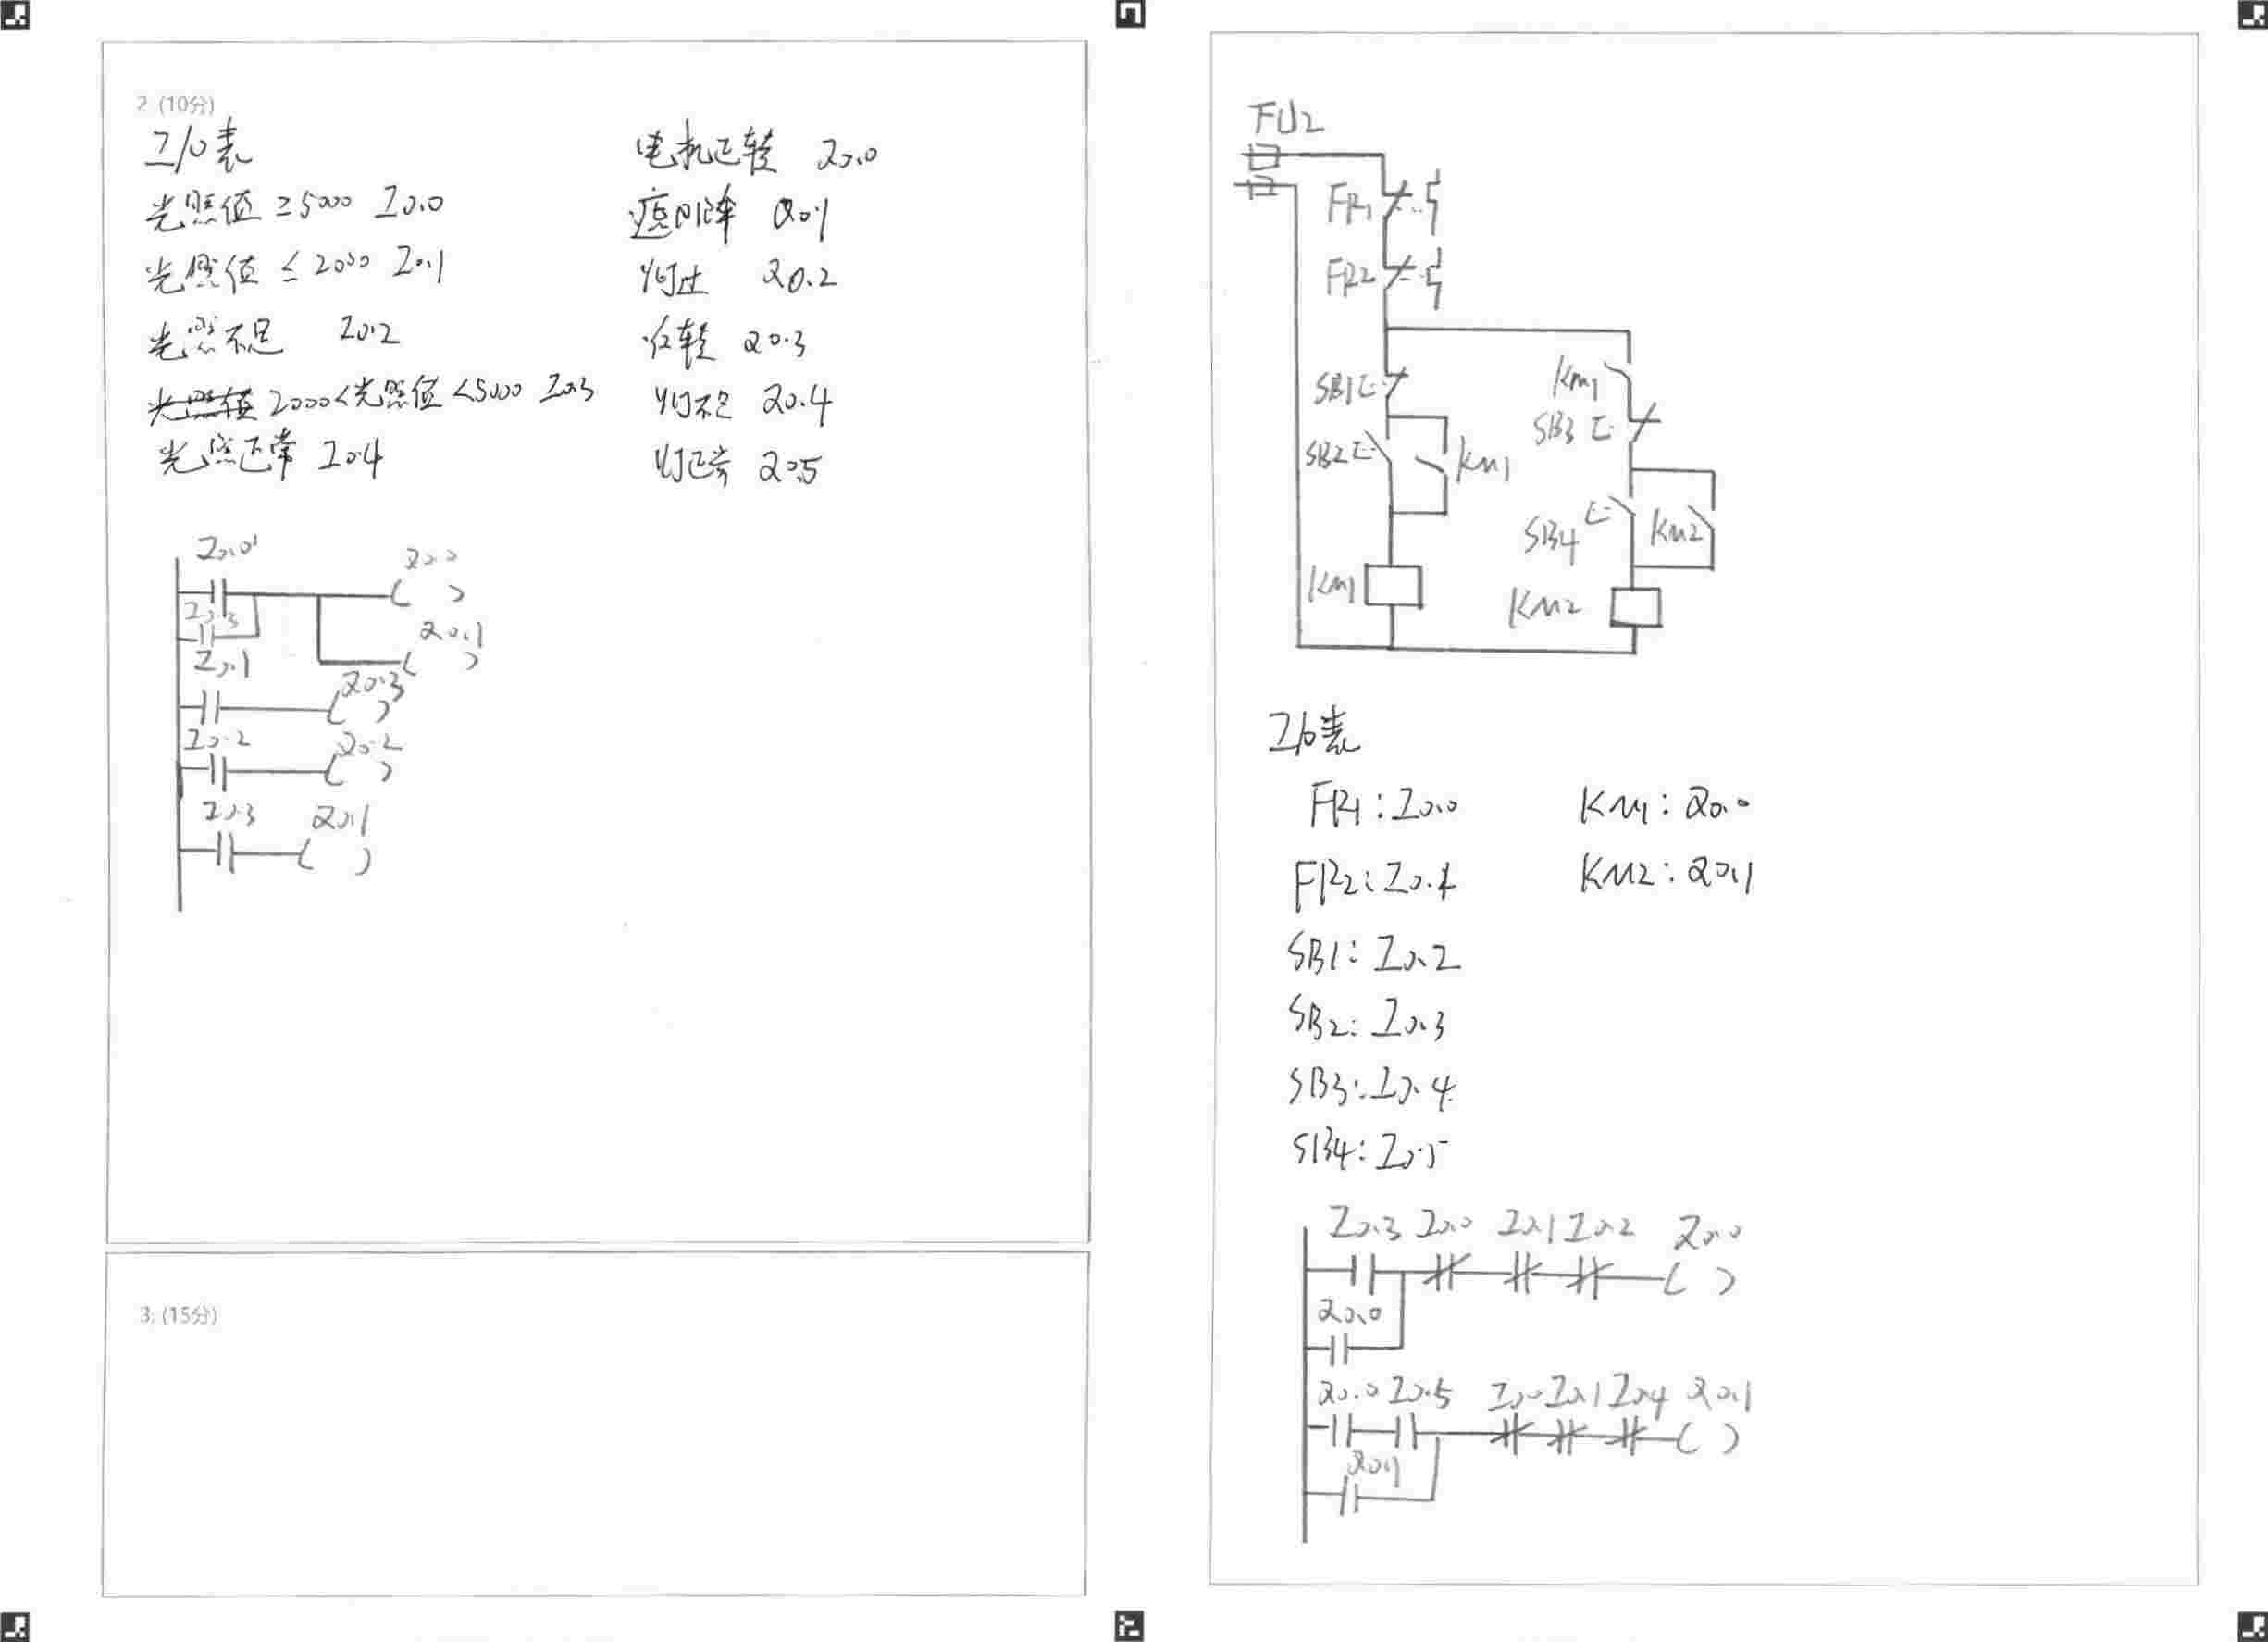 2. (10分)
I/0表
光照值 ≥5000 I0.0
光照值 ≤ 2000 I0.1
光照不足 I0.2
2000<光照值<5000 I0.3
光照正常 I0.4
电机正转 Q0.0
Q0.1
Q0.2
Q0.3
灯不足 Q0.4
灯正常 Q0.5
I0.0 Q0.0
I0.3 Q0.1
I0.1 Q0.3
I0.2 Q0.2
I0.3 Q0.1
3. (15分)
FU2
FR1
FR2
SB1 KM1
SB3
SB2 KM1
SB4 KM2
KM1 KM2
I/0表
FR1: I0.0 KM1: Q0.0
FR2: I0.1 KM2: Q0.1
SB1: I0.2
SB2: I0.3
SB3: I0.4
SB4: I0.5
I0.3 I0.0 I0.1 I0.2 Q0.0
Q0.0
Q0.0 I0.5 I0.0 I0.1 I0.4 Q0.1
Q0.1